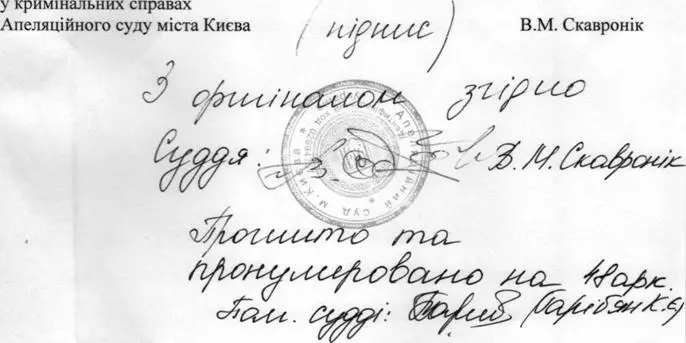 у кримінальних справах
Апеляційного суду міста Києва (підпис) В.М. Скавронік
З оригіналом згідно
Суддя: В.М. Скавронік
Прошито та
пронумеровано на арк.
Пом. судді: (Гарібян К.Є)
Апеляційний суд м. Києва
Ідентифікаційний код